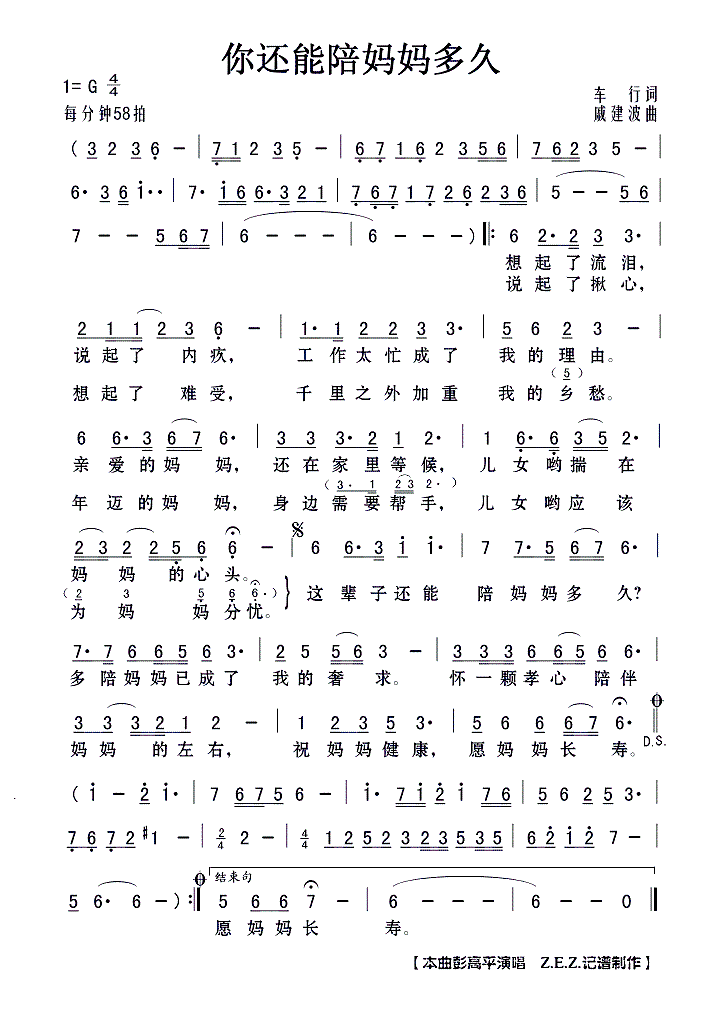 你还能陪妈妈多久
1= G 4/4
每分钟58拍
车 行 词
戚建波 曲
( 3 2 3 6 － | 7 1 2 3 5 － | 6 7 1 6 2 3 5 6 | 7 6 2 3 5 － |
6· 3 6 i·· | 7· i 6 6· 3 2 1 | 7 6 7 1 7 2 6 2 3 6 | 5 － － 5 6 |
7 － － 5 6 7 | 6 － － － | 6 － － ) ‖: 6 2· 2 3 3· |
想 起 了 流 泪，
说 起 了 揪 心，
2 1 1 2 3 6 － | 1· 1 2 2 3 2 | 5 6 2 3 － |
说 起 了 内 疚， 工 作 太 忙 成 了 我 的 理 由。
( 5 )
想 起 了 难 受， 千 里 之 外 加 重 我 的 乡 愁。
6 6· 3 6 7 6· | 3 3 3· 2 1 2· | 1 6· 6 3 5 2· |
亲 爱 的 妈 妈， 还 在 家 里 等 候， 儿 女 哟 揣 在
( 3· 1 2 3 2· )
年 迈 的 妈 妈， 身 边 需 要 帮 手， 儿 女 哟 应 该
2 3 2 2 5 6 6 － | 6 6· 3 i i· | 7 7· 5 6 7 6· |
妈 妈 的 心 头。
( 2 3 5 6 6· ) 这 辈 子 还 能 陪 妈 妈 多 久？
为 妈 妈 分 忧。
7· 7 6 6 5 6 3· | 2 5 5 6 3 － | 3 3 3 6 6 5 6 |
多 陪 妈 妈 已 成 了 我 的 奢 求。 怀 一 颗 孝 心 陪 伴
3 3 3 2 1 2 － | 1 2 3 5 3· | 5 6 6 6 7 6· ‖
D.S.
妈 妈 的 左 右， 祝 妈 妈 健 康， 愿 妈 妈 长 寿。
( i － 2 i· | 7 6 7 5 6 － | i· 7 i 2 i 5 | 6 5 2 3 － |
7 6 7 2 #1 － | 2/4 2 － | 4/4 1 2 5 2 3 2 3 5 3 5 | 6 2 i 2 7 |
结束句
5 6 6· 6 － ) :‖ 5 6 6 7 － | 6 － － － | 6 － － 0 ‖
愿 妈 妈 长 寿。
【本曲彭高平演唱 Z.E.Z.记谱制作】